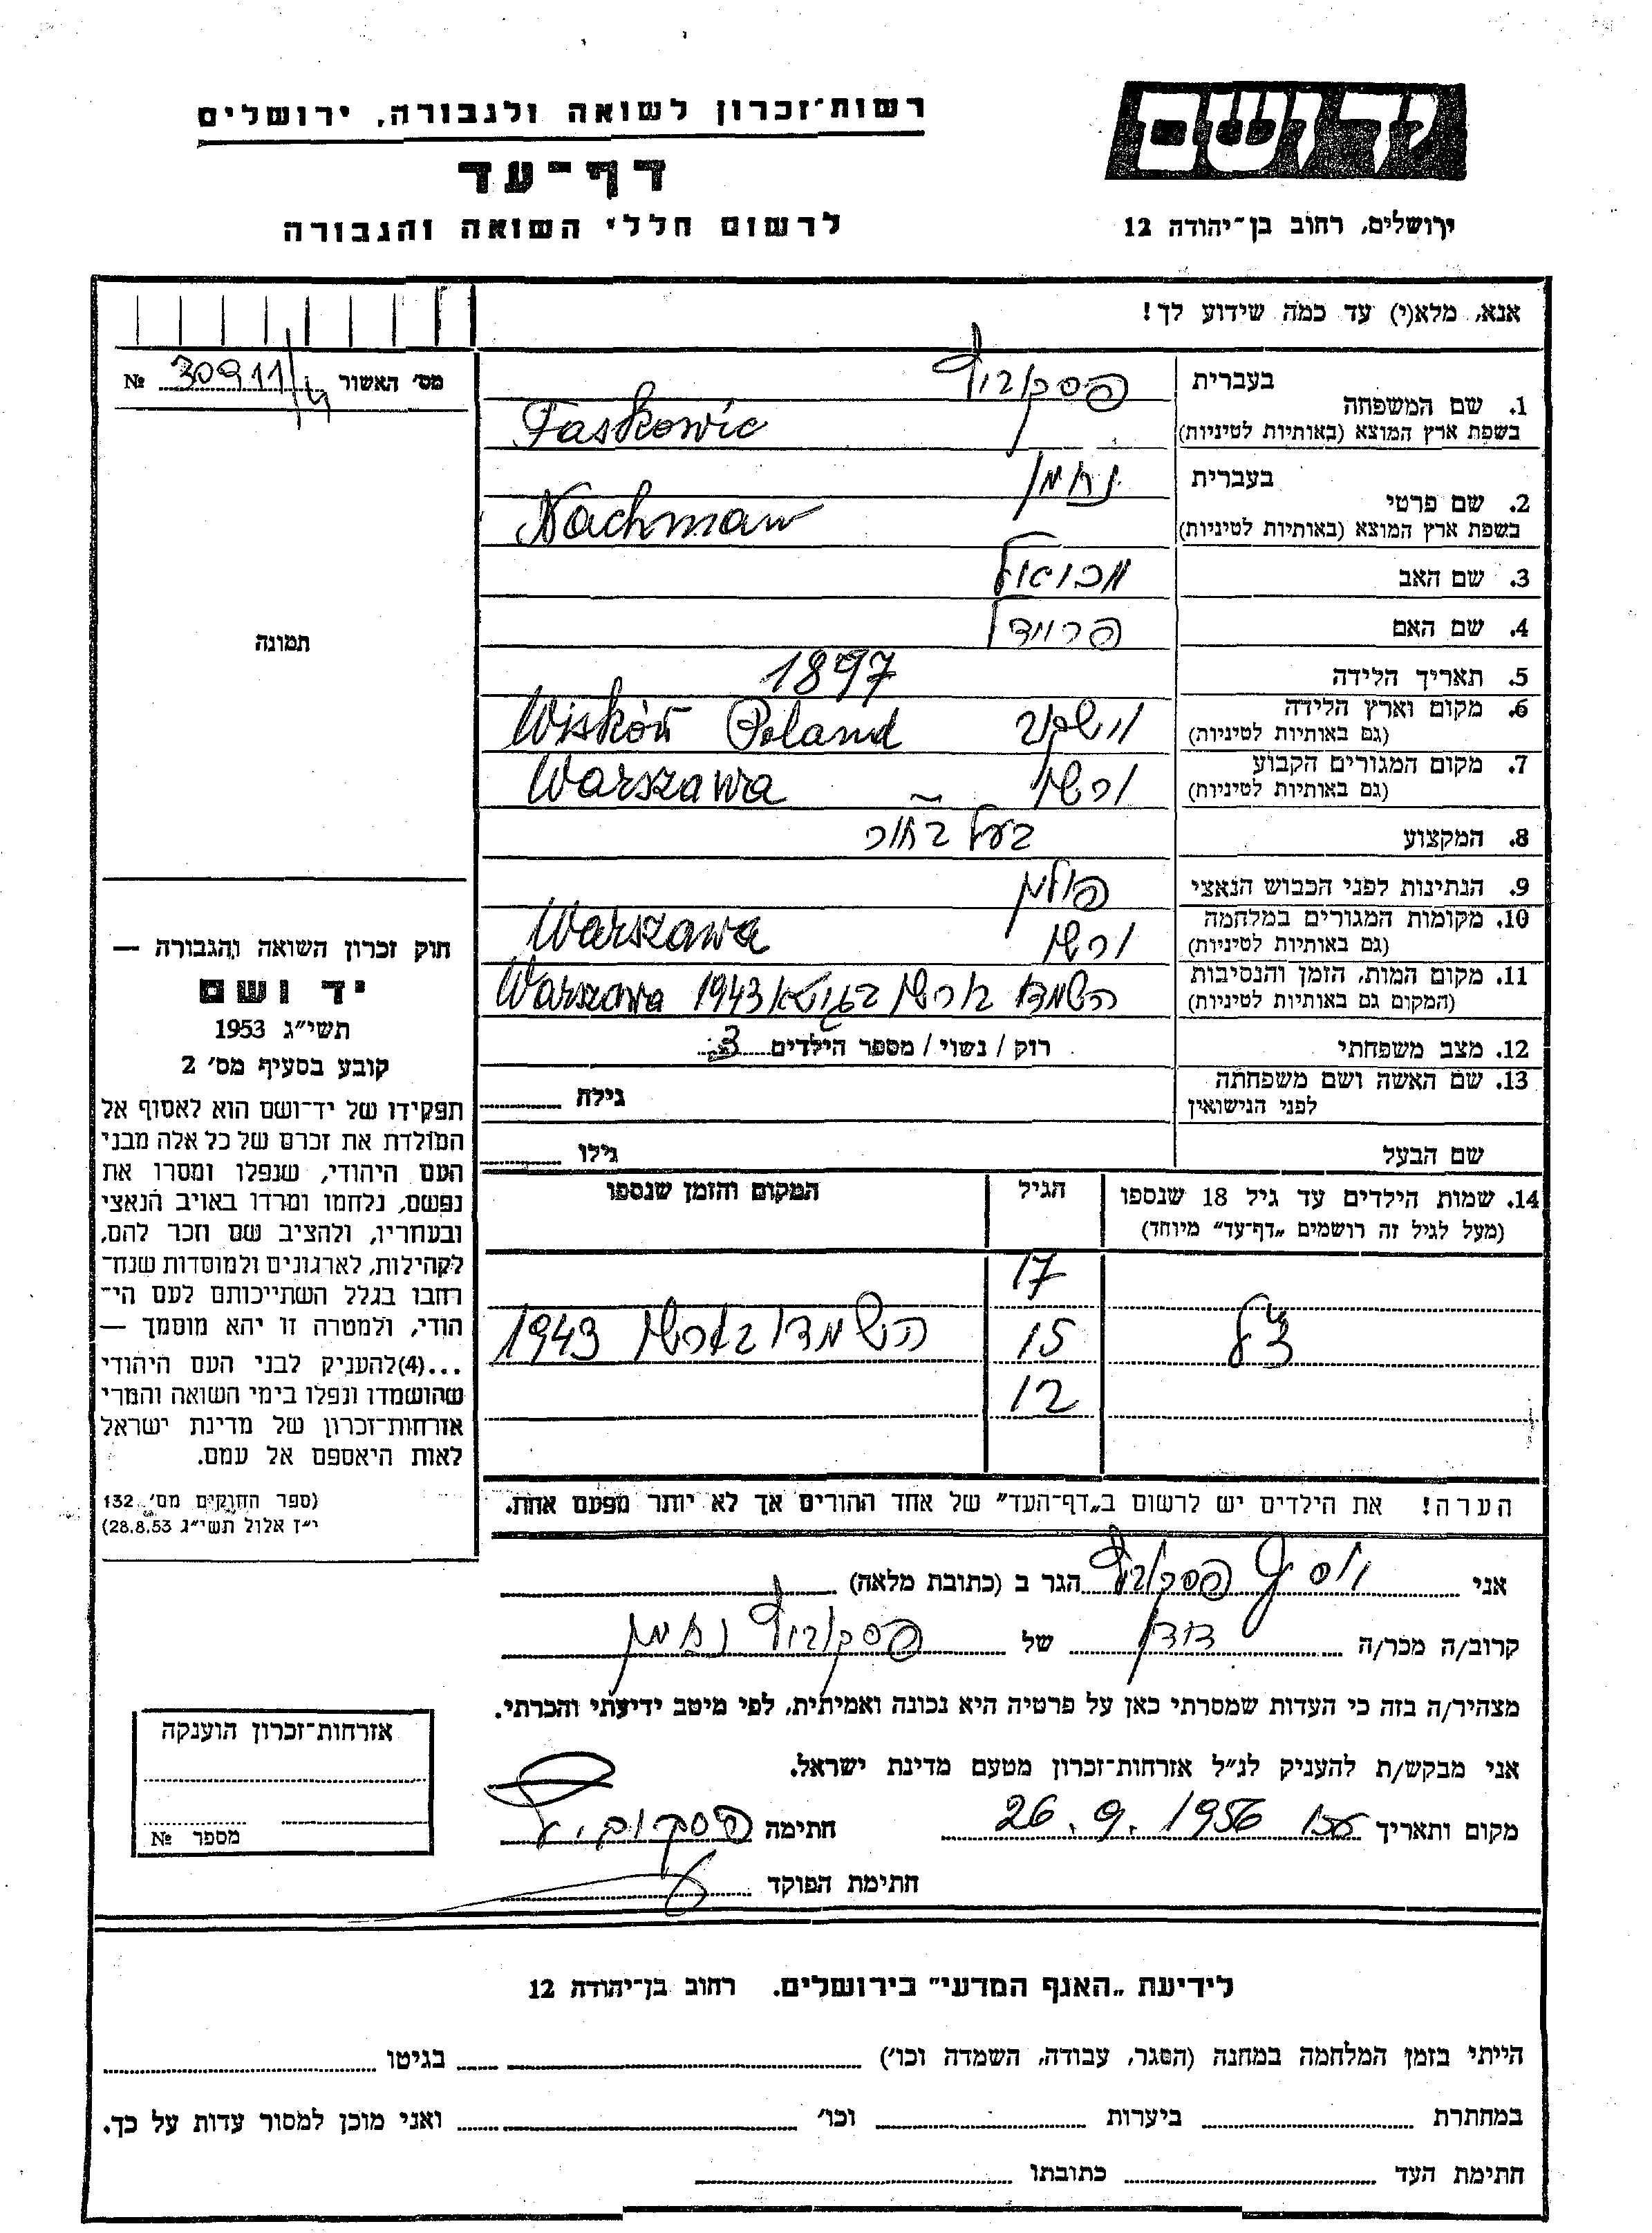 רשות־זכרון לשואה ולגבורה, ירושלים
דף-עד
לרשום חללי השואה והגבורה
ידושם
ירושלים, רחוב בן־יהודה 12
אנא, מלא(י) עד כמה שידוע לך!
מס' האשור № 30911/
1. שם המשפחה
בעברית
בשפת ארץ המוצא (באותיות לטיניות) Faskowic
2. שם פרטי
בעברית נחמן
בשפת ארץ המוצא (באותיות לטיניות) Nachman
3. שם האב
4. שם האם
5. תאריך הלידה 1897
6. מקום וארץ הלידה
(גם באותיות לטיניות) וישקוב Wiskóv Poland
7. מקום המגורים הקבוע
(גם באותיות לטיניות) ורשו Warszawa
8. המקצוע
9. הנתינות לפני הכבוש הנאצי פולין
10. מקומות המגורים במלחמה
(גם באותיות לטיניות) ורשו Warszawa
11. מקום המות, הזמן והנסיבות
(המקום גם באותיות לטיניות) 1943 Warszawa
12. מצב משפחתי רוק / נשוי / מספר הילדים 3
13. שם האשה ושם משפחתה
לפני הנישואין גילה
שם הבעל גילו
14. שמות הילדים עד גיל 18 שנספו הגיל המקום והזמן שנספו
(מעל לגיל זה רושמים „דף־עד" מיוחד)
17
15 1943
12
הערה! את הילדים יש לרשום ב„דף־העד" של אחד ההורים אך לא יותר מפעם אחת.
תמונה
חוק זכרון השואה והגבורה —
יד ושם
תשי"ג 1953
קובע בסעיף מס' 2
תפקידו של יד־ושם הוא לאסוף אל
המולדת את זכרם של כל אלה מבני
העם היהודי, שנפלו ומסרו את
נפשם, נלחמו ומרדו באויב הנאצי
ובעוזריו, ולהציב שם וזכר להם,
לקהילות, לארגונים ולמוסדות שנח־
רחבו בגלל השתייכותם לעם הי־
הודי, ולמטרה זו יהא מוסמך —
...(4)להעניק לבני העם היהודי
שהושמדו ונפלו בימי השואה והמרי
אזרחות־זכרון של מדינת ישראל
לאות היאספם אל עמם.
(ספר החוקים מס' 132
י"ז אלול תשי"ג 28.8.53)
אני יוסף הגר ב (כתובת מלאה)
קרוב/ה מכר/ה דודן של נחמן
מצהיר/ה בזה כי העדות שמסרתי כאן על פרטיה היא נכונה ואמיתית, לפי מיטב ידיעתי והכרתי.
אני מבקש/ת להעניק לנ"ל אזרחות־זכרון מטעם מדינת ישראל.
מקום ותאריך 26.9.1956 חתימה
חתימת הפוקד
אזרחות־זכרון הוענקה
מספר №
לידיעת „האגף המדעי" בירושלים. רחוב בן־יהודה 12
הייתי בזמן המלחמה במחנה (הסגר, עבודה, השמדה וכו') בגיטו
במחתרת ביערות וכו' ואני מוכן למסור עדות על כך.
חתימת העד כתובתו